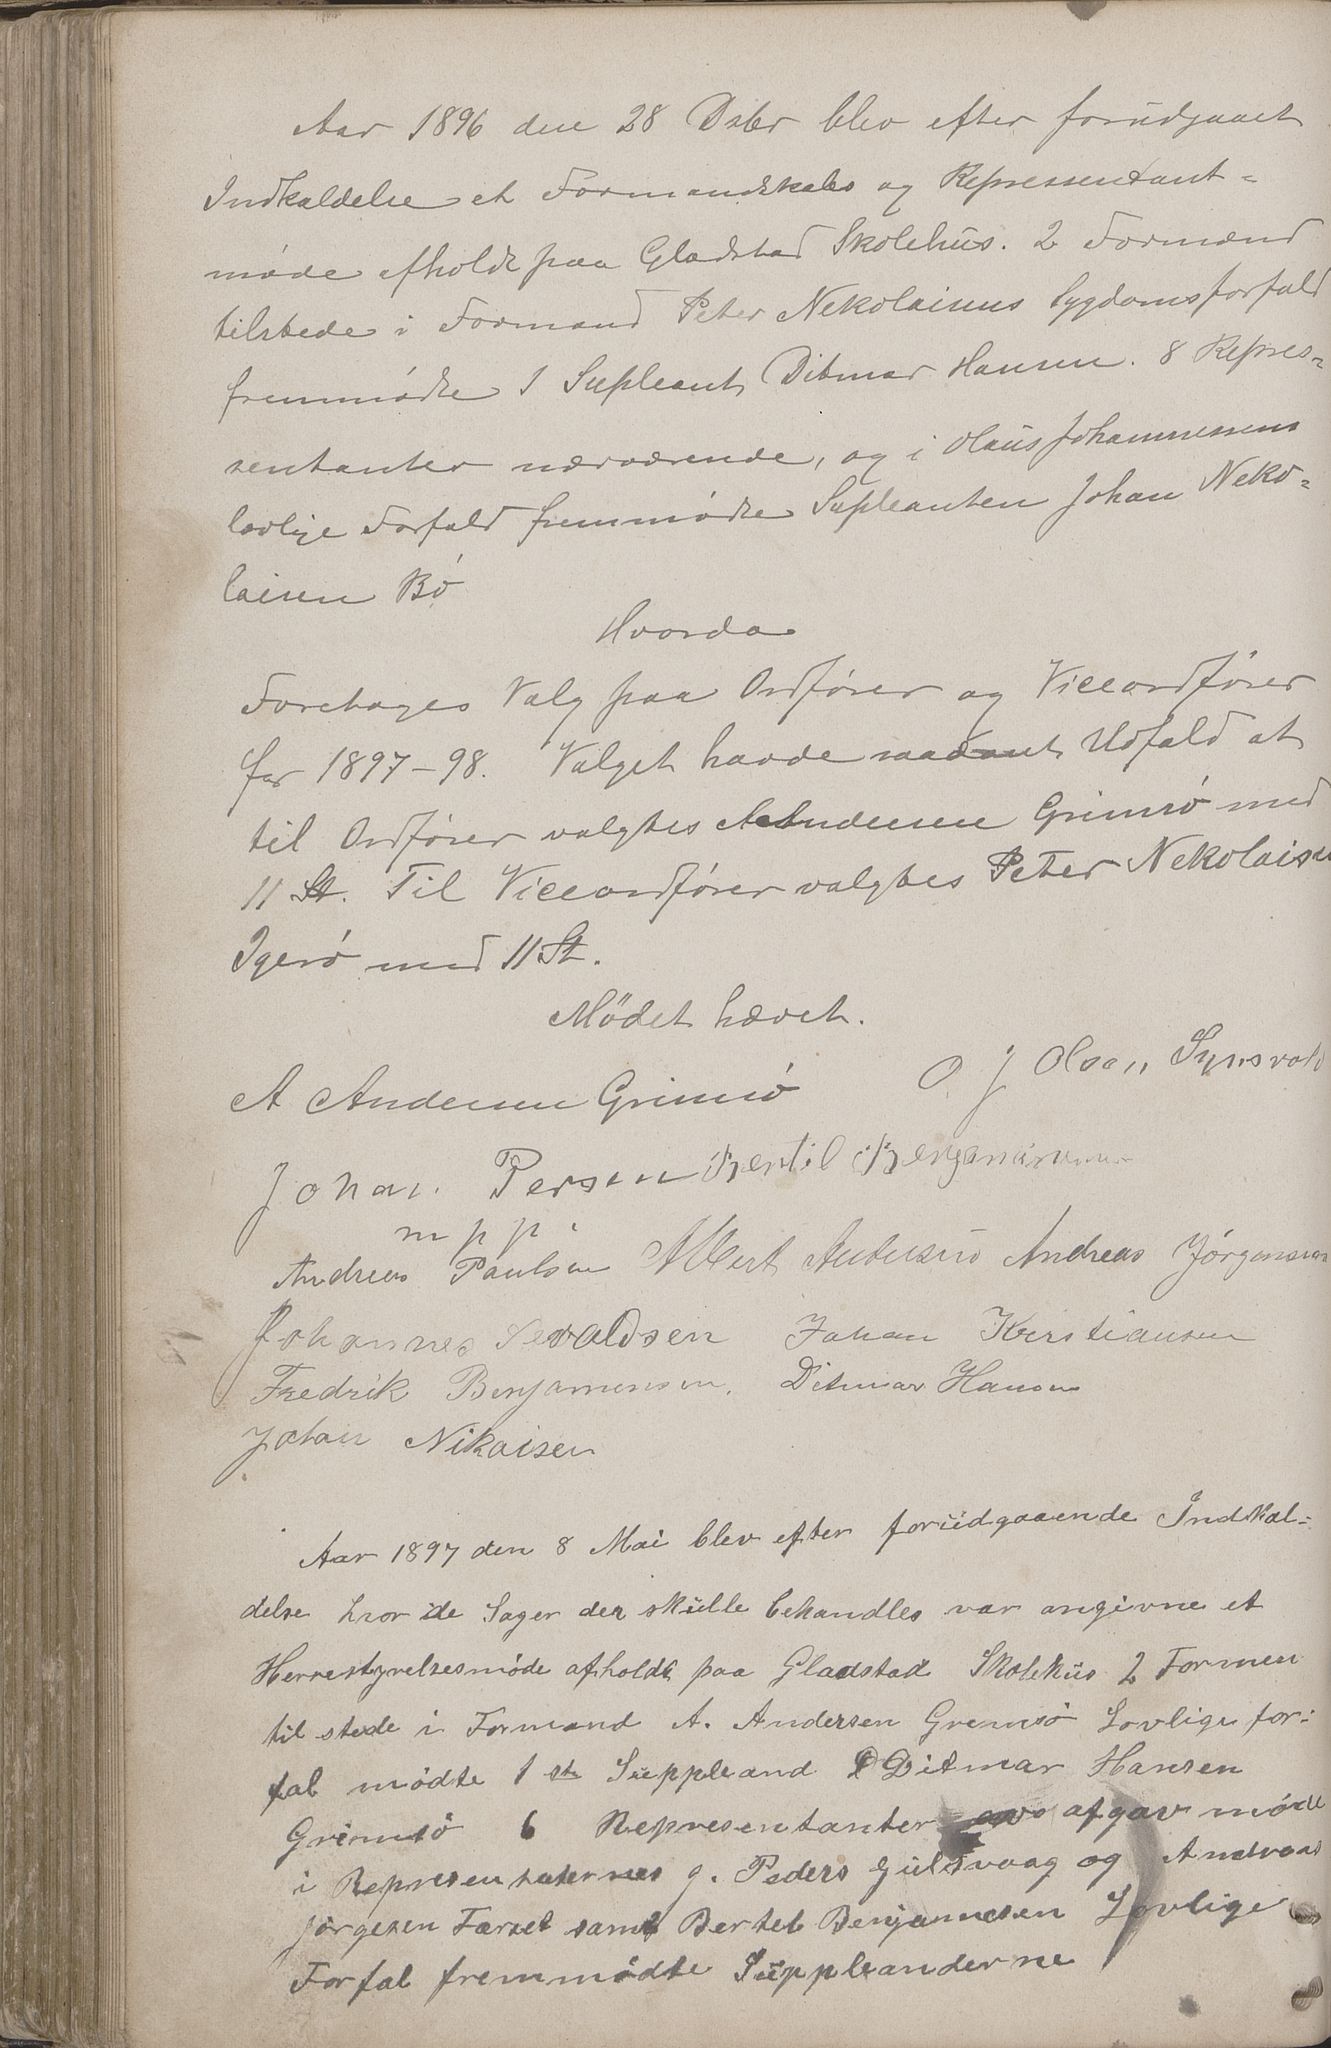 Aar 1896 den 28 Dsbr blev efter forudgaaet
Indkaldelse et Formandskabs og Repressentant-
møde afholdt paa Gladstad Skolehus. 2 Formænd
tilstede i Formand Peter Nekolaisens Sygdomsforfald
fremmødte 1 Supleant Ditmar Hansen. 8 Repres-
sentanter nærværende, og i Olaus Johannessens
lovlige Forfald fremmødte Supleanten Johan Neko-
laisen Bø
Hvorda
Foretoges Valg paa Ordfører og Viceordfører
for 1897-98. Valget havde saadant Udfald at
til Ordfører valgtes A Andersen Grimsø med
11 St. Til Viceordfører valgtes Peter Nekolaisen
Igerø med 11 St.
Mødet hævet.
A Andersen Grimsø O J Olsen Synsvold
Johan Persen Bertil Benjaminsen
m p p
Andreas Paulsen Albert Andreas Jørgensen
Johannes Sevaldsen Johan Kristiansen
Fredrik Benjamensen. Ditmar Hansen
Johan Nikaisen
Aar 1897 den 8 Mai blev efter forudgaaende Indkal-
delse hvor de Sager der skulle behandles var angivne et
Herrestyrelsesmøde afholdt paa Gladstad Skolehus 2 Formen
til stede i Formand A. Andersen Gremsø Lovlige for-
fal mødte 1 ste Suppleand Ditmar Hansen
Grimsø 6 Representanter afgav møde
i Representaternes J. Peders Gulsvaag og Andreas
Jørgesen Færset samt Berteb Benjamnesen Lovlige
Forfal fremmødte Suppleanderne